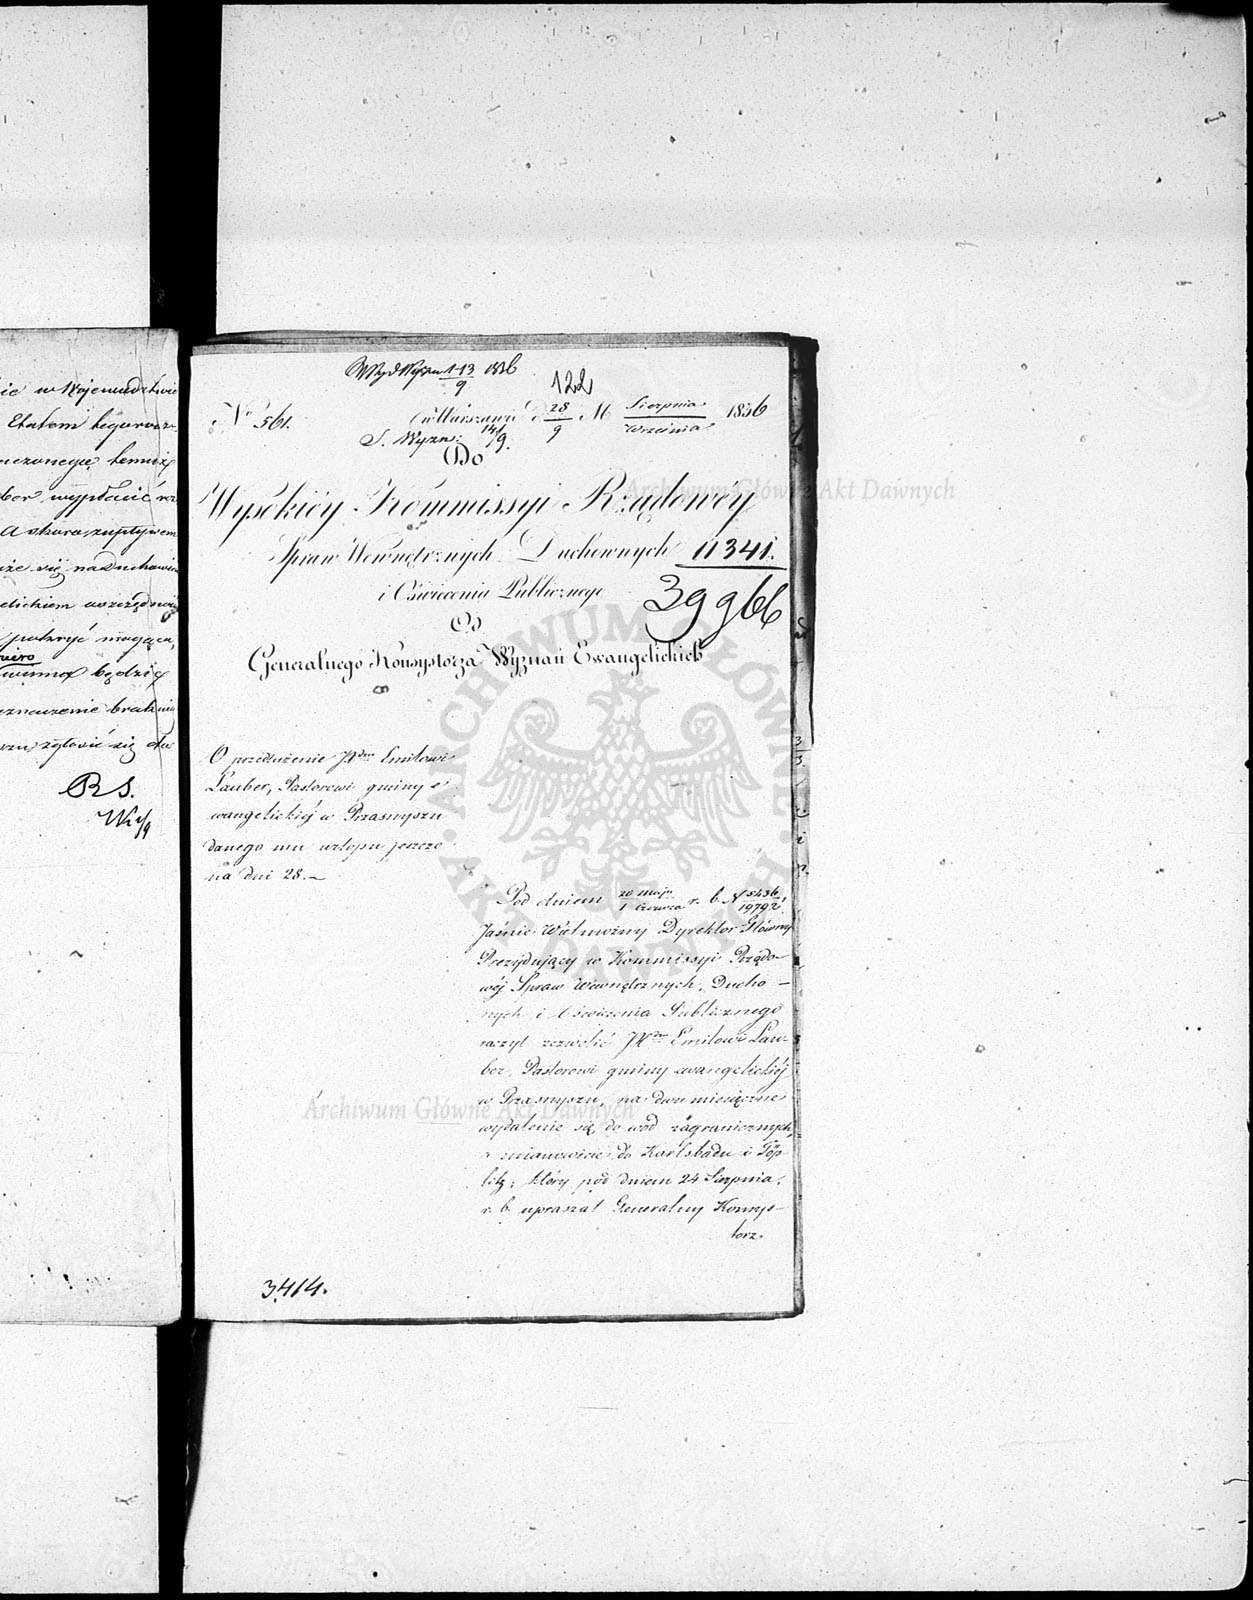 ie w Wojewodztwie
Etatem
temuż
ber wypłacić
się na Duchowne
pokryć mogąca,
winna będzie
oznaczenie
zgłosić się do
RS.
1-13/9 1836
122
No 561.
w Warszawie d. 28/9 M. Sierpnia/Września 1836
S. Wyzn: 14/9.
Do
Wysokiéy Kommissyi Rządowéy
Spraw Wewnętrznych Duchownych 11341.
i Oświecenia Publicznego
39966
Od
Generalnego Konsystorza Wyznań Ewangelickich
O przedłużenie JXdzu Emilowi
Lauber, Pastorowi gminy e-
wangelickiéj w Przasnyszu
danego mu urlopu jeszcze
na dni 28.—
Pod dniem 20 maja/1 czerwca r. b. N 5436/19792,
Jaśnie Wielmożny Dyrektor Główny
Prezydujący w Kommissyi Rządo-
wéj Spraw Wewnętrznych, Ducho-
nych i Oświecenia Publicznego
raczył zezwolić JXdzu Emilowi Lau-
ber, Pastorowi gminy ewangelickiéj
w Przasnyszu, na dwu miesięczne
wydalenie się do wód zagranicznych,
a mianowicie do Karlsbadu i Töp-
litz; który pod dniem 24 Sierpnia
r. b. upraszał Generalny Konsys-
torz
3414.
Archiwum Główne Akt Dawnych
Archiwum Główne Akt Dawnych
ARCHIWUM GŁÓWNE AKT DAWNYCH